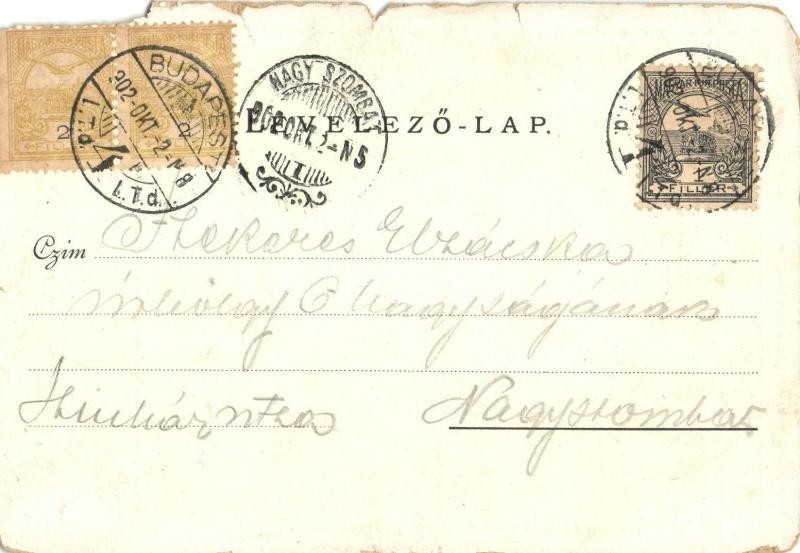 MAGYAR KIR. POSTA
MAGYAR KIR. POSTA
2 FILLÉR
FILLÉR
BUDAPEST
902-OKT. 2-N. 8
I. T. d.
NAGY SZOMBAT
902 OKT. 2-N 5
LEVELEZŐ-LAP.
MAGYAR KIR. POSTA
1
FILLÉR
Czim Szekeres Elzácska
úrhölgy Ő Nagyságának
Szinház utca Nagyszombat